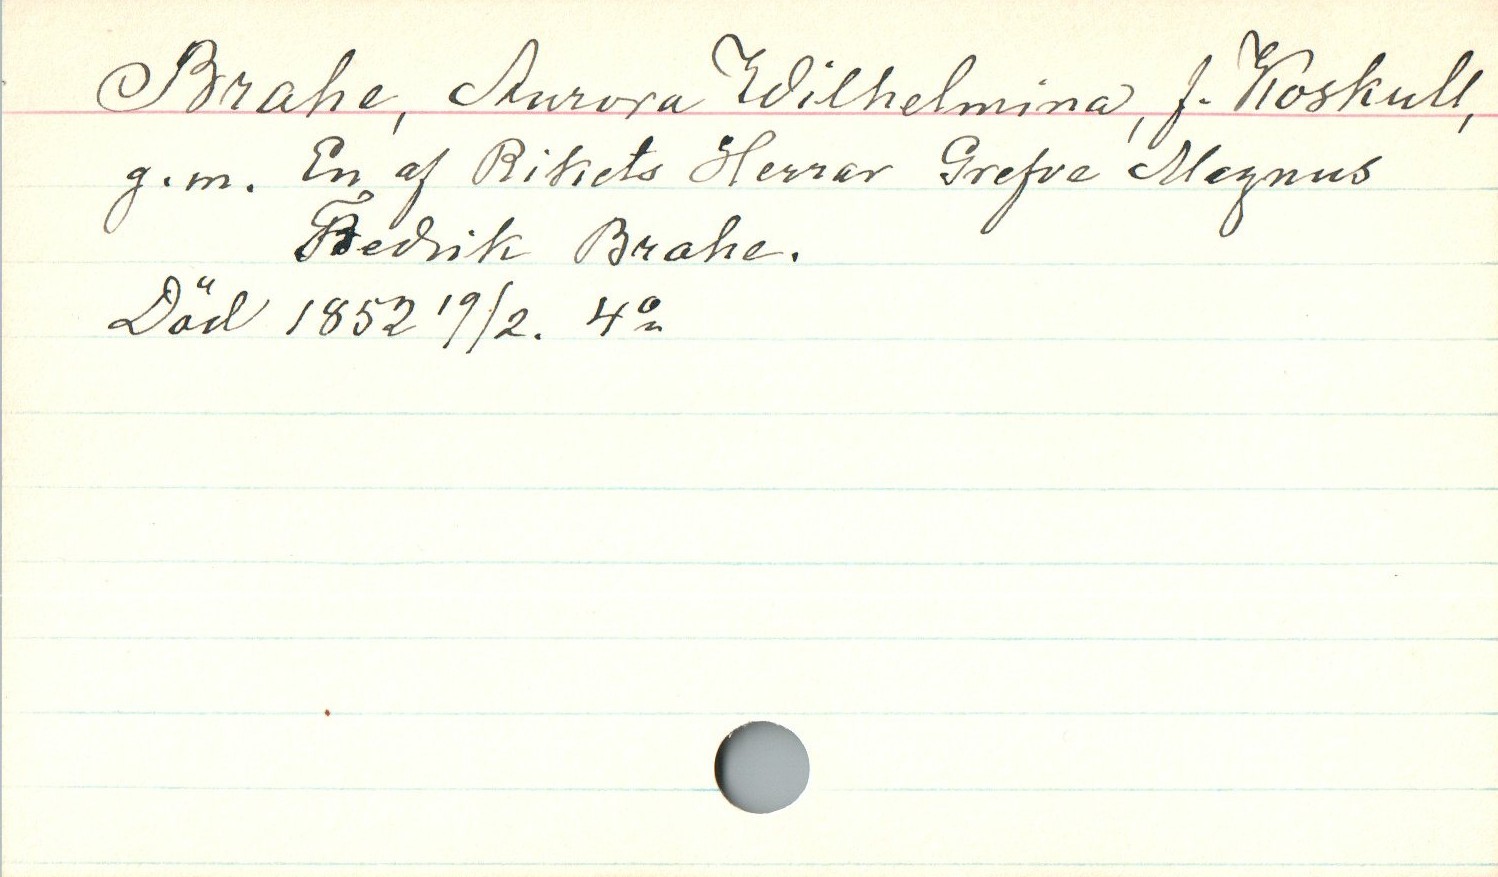 Brahe, Aurora Wilhelmina, f. Koskull,
g.m. En af Rikets Herrar Grefve Magnus
Fredrik Brahe.
Död 1852 19/2. 4o